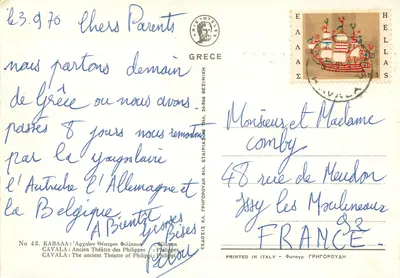 23.9.70 Chers Parents
nous partons demain
de Grèce ou nous avons
passés 8 jours nous remontons
par la yougoslavie
l'Autriche l'Allemagne et
la Belgique
A Bientôt
grosses
Bises
GRECE
ΕΛΛΑΣ
HELLAS
KAVALA
Monsieur et Madame
Comby
48 rue de Meudon
Issy les Moulineaux
92
FRANCE.
No 42. ΚΑΒΑΛΑ: Ἀρχαῖον Θέατρον Φιλίππων
CAVALA: Ancien Théâtre des Philippes
CAVALA: The ancient Theatre of Philippi
PRINTED IN ITALY - Φωτογρ ΓΡΗΓΟΡΙΑΔΗ